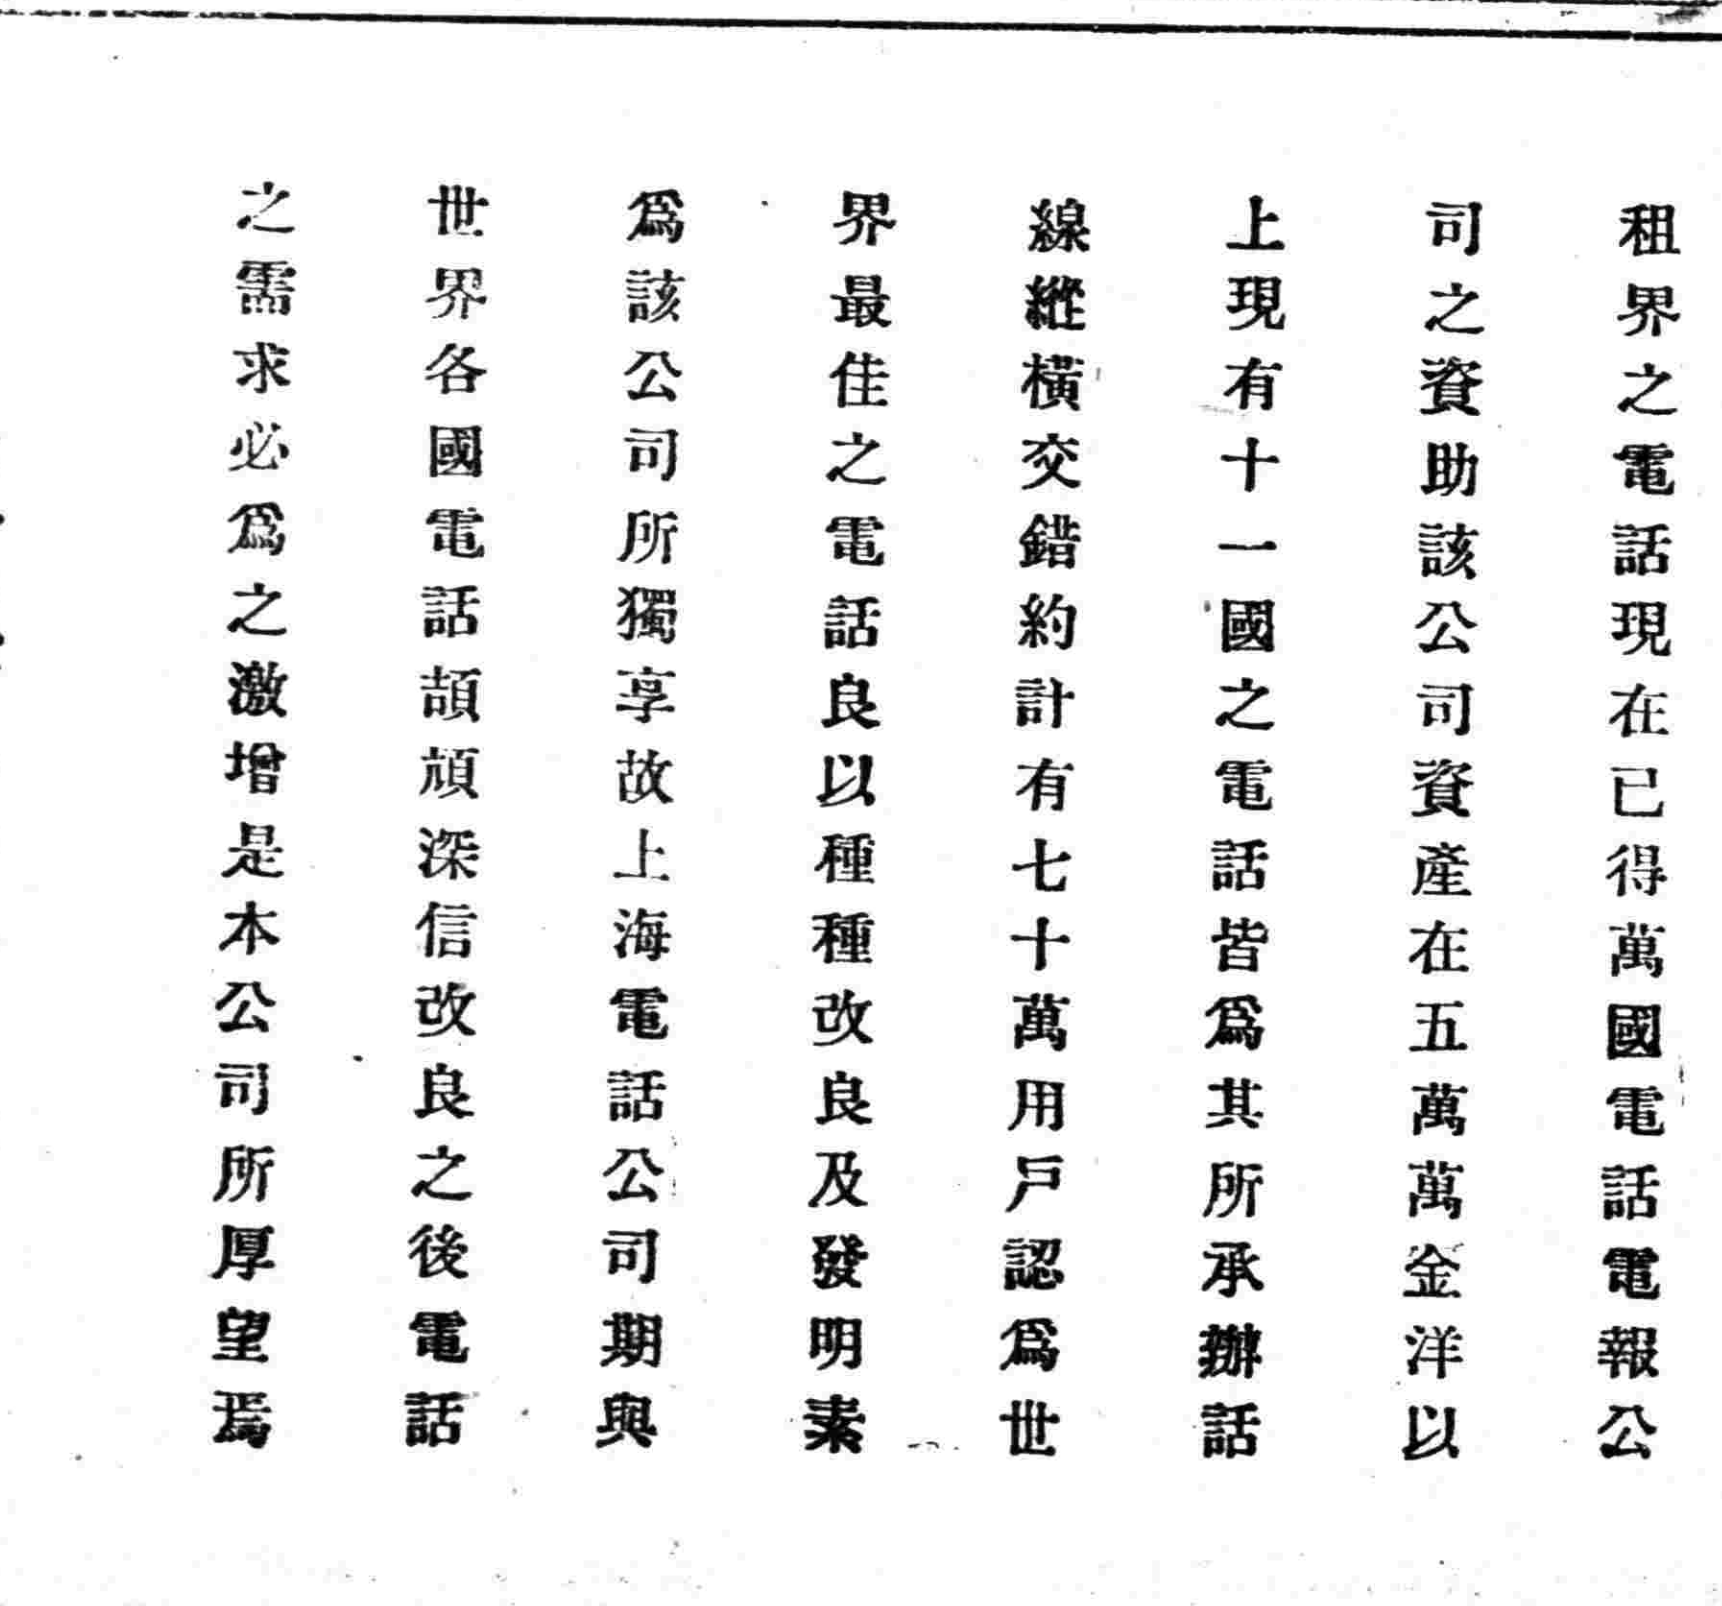 租界之電話現在已得萬國電話電報公
司之資助該公司資產在五萬萬金洋以
上現有十一國之電話皆爲其所承辦話
線縱橫交錯約計有七十萬用戶認爲世
界最佳之電話良以種種改良及發明素
爲該公司所獨享故上海電話公司期與
世界各國電話頡頏深信改良之後電話
之需求必爲之激增是本公司所厚望焉